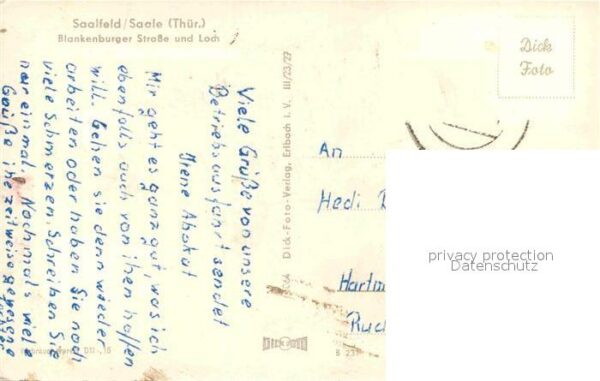 Saalfeld/Saale (Thür.)
Blankenburger Straße und Loch
Viele Grüße von unsere
Betriebsausfahrt sendet
Irene Abokat
Mir geht es ganz gut, was ich
ebenfalls auch von ihen hoffen
will. Gehen sie denn wieder
arbeiten oder haben Sie noch
viele Schmerzen. Schreiben Sie
nur einmal. Nochmals viele
Grüße ihe zeitweise gewesene
Dick-Foto-Verlag, Erlbach i. V. III/23/27
Dick
Foto
An
Hedi
Hartm
Ruc
privacy protection
Datenschutz
B 231